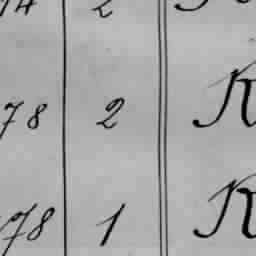 14 2
78 2 K
78 1 K